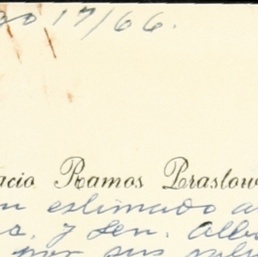 go 17/66.
acio Ramos Praslow
n estimado a
a. y Sen. Alb
por sus